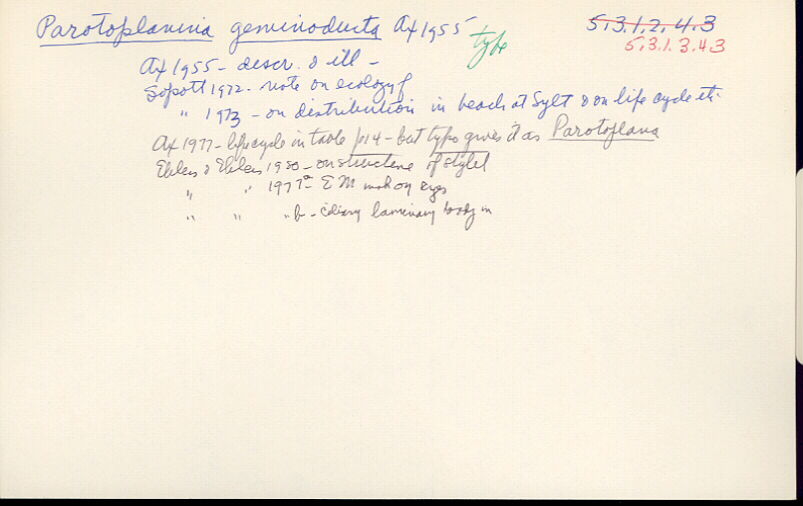 Parotoplanina geminoducta Ax 1955 type 5.3.1.2.4.3
5.3.1.3.4.3
Ax 1955 - descr. & ill -
Sopott 1972 - note on ecology of
" 1973 - on distribution in beach at Sylt & on life cycle etc.
Ax 1977 - lifecycle in table p14 - but typo gives it as Parotoplana
Ehlers & Ehlers 1980 - on structure of stylet
" " 1977a EM work on eyes
" " " b - ciliary laminary body in